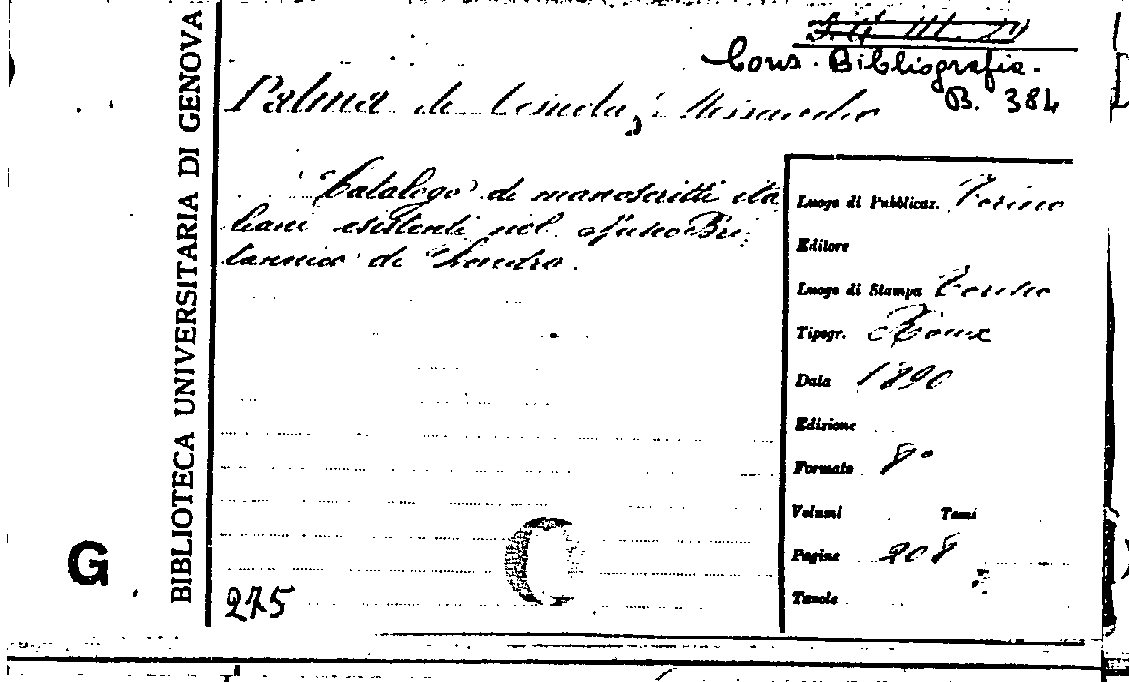 Cons. Bibliografia.
B. 384
Palma di Cesnola, Alessandro
Catalogo di manoscritti ita
liani esistenti nel Museo Bri-
tannico di Londra.
Luogo di Pubblicaz. Torino
Editore
Luogo di Stampa Torino
Tipogr. Roux
Data 1890
Edizione
Formato 8°
Volumi Tomi
Pagine 208
Tavole
275
BIBLIOTECA UNIVERSITARIA DI GENOVA
G
C